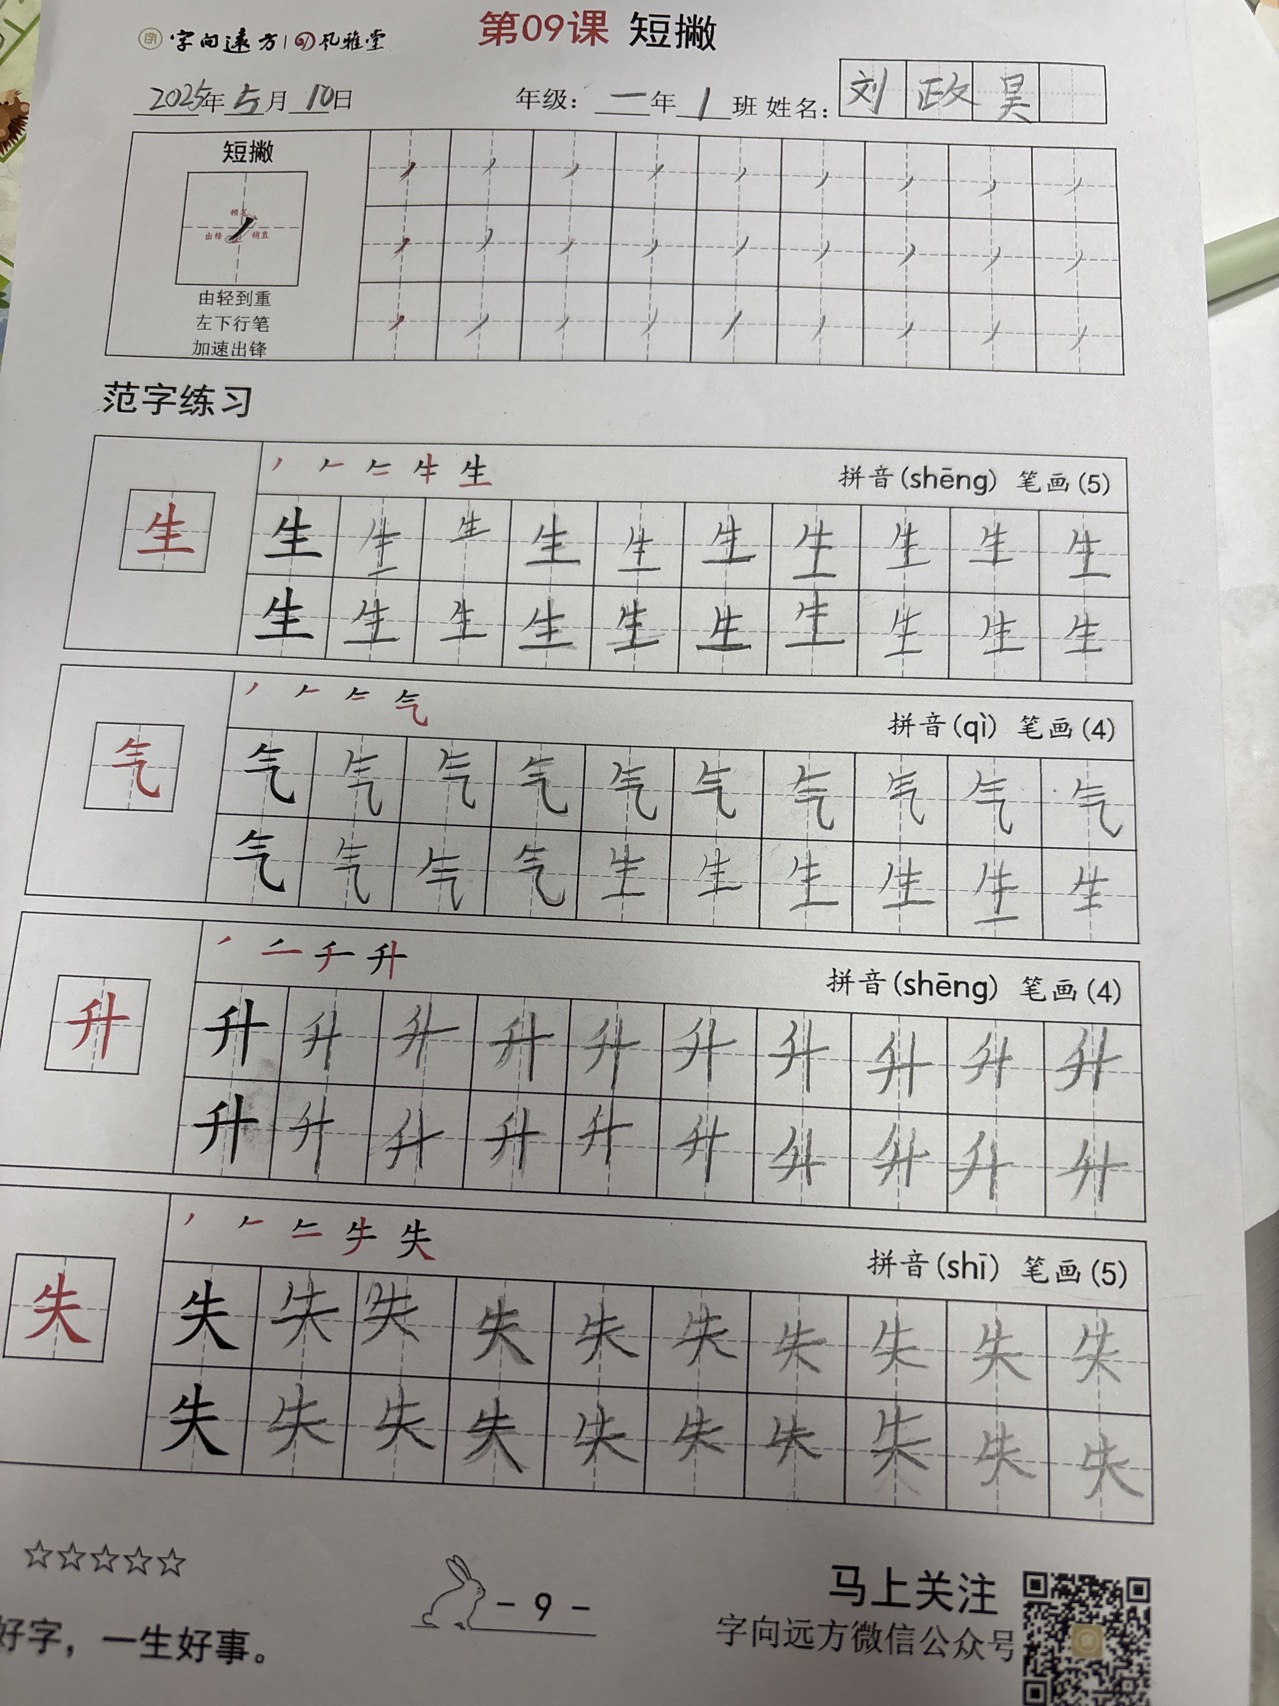 字向远方 | 风雅堂
第09课 短撇
2025年5月10日 年级：一年1班 姓名：刘政昊
短撇
顿笔
出锋 稍直
由轻到重
左下行笔
加速出锋
范字练习
生 拼音(shēng) 笔画(5)
生
生 生 生 生 生 生 生 生 生 生
生 生 生 生 生 生 生 生 生 生
气 拼音(qì) 笔画(4)
气
气 气 气 气 气 气 气 气 气 气
气 气 气 气 生 生 生 生 生 生
升 拼音(shēng) 笔画(4)
升
升 升 升 升 升 升 升 升 升 升
升 升 升 升 升 升 升 升 升 升
失 拼音(shī) 笔画(5)
失
失 失 失 失 失 失 失 失 失 失
失 失 失 失 失 失 失 失 失 失
☆☆☆☆☆
好字，一生好事。
- 9 -
马上关注
字向远方微信公众号